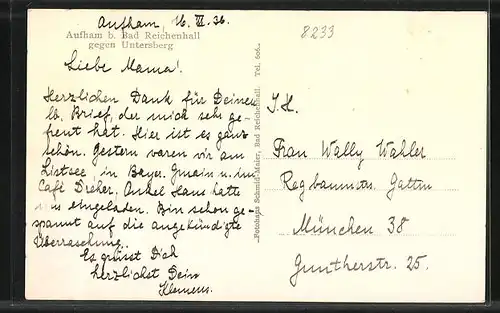 Aufham, 16. VI. 36.
8233
Aufham b. Bad Reichenhall
gegen Untersberg
Liebe Mama!
Herzlichen Dank für Deinen
lb. Brief, der mich sehr ge-
freut hat. Hier ist es ganz
schön. Gestern waren wir am
Listsee, in Bayr. Gmain u. im
Café Dreher. Onkel Hans hatte
uns eingeladen. Bin schon ge-
spannt auf die angekündigte
Überraschung.
Es grüsst Dich
herzlichst Dein
Klemens.
Fotohaus Schmid-Maier, Bad Reichenhall. Tel. 606.
I.H.
Frau Wally Wahler
Regbaumstr. Gattin
München 38
Guntherstr. 25.